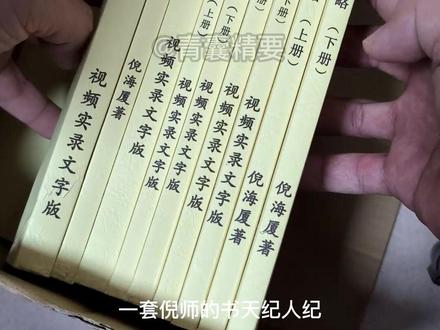 @青囊精要
视频实录文字版
倪海厦著
视频实录文字版
视频实录文字版
视频实录文字版
(下册)
视频实录文字版
(上册)
视频实录文字版
(下册)
倪海厦著
(上册)
倪海厦著
略(下册)
一套倪师的书天纪人纪